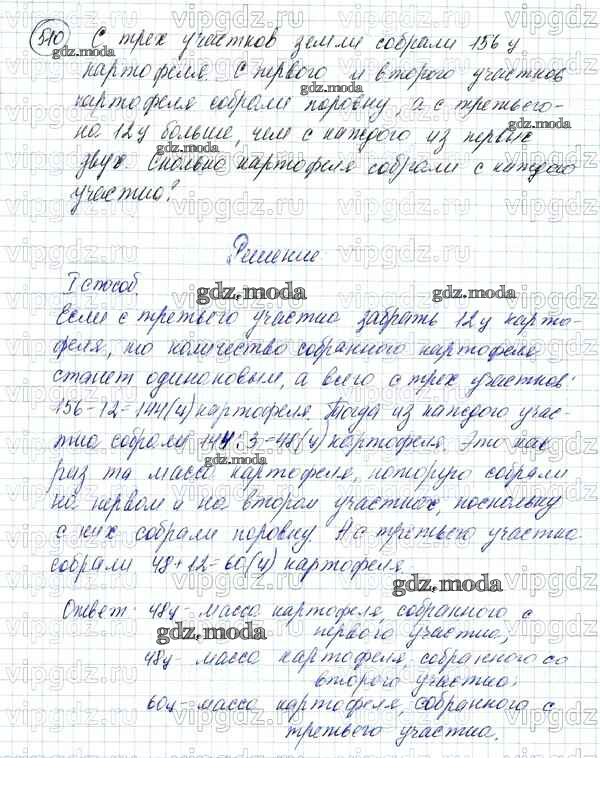 510 С трех участков земли собрали 156 ц
картофеля. С первого и второго участков
картофеля собрали поровну, а с третьего -
на 12 ц больше, чем с каждого из первых
двух. Сколько картофеля собрали с каждого
участка?
Решение
I способ.
Если с третьего участка забрать 12 ц карто-
феля, то количество собранного картофеля
станет одинаковым, а всего с трех участков:
156-12=144(ц) картофеля. Тогда из каждого учас-
тка собрали 144:3=48(ц) картофеля. Это как
раз та масса картофеля, которую собрали
на первом и на втором участках, поскольку
с них собрали поровну. А с третьего участка
собрали 48+12=60(ц) картофеля.
Ответ: 48ц - масса картофеля, собранного с
первого участка;
48ц - масса картофеля, собранного со
второго участка;
60ц - масса картофеля, собранного с
третьего участка.